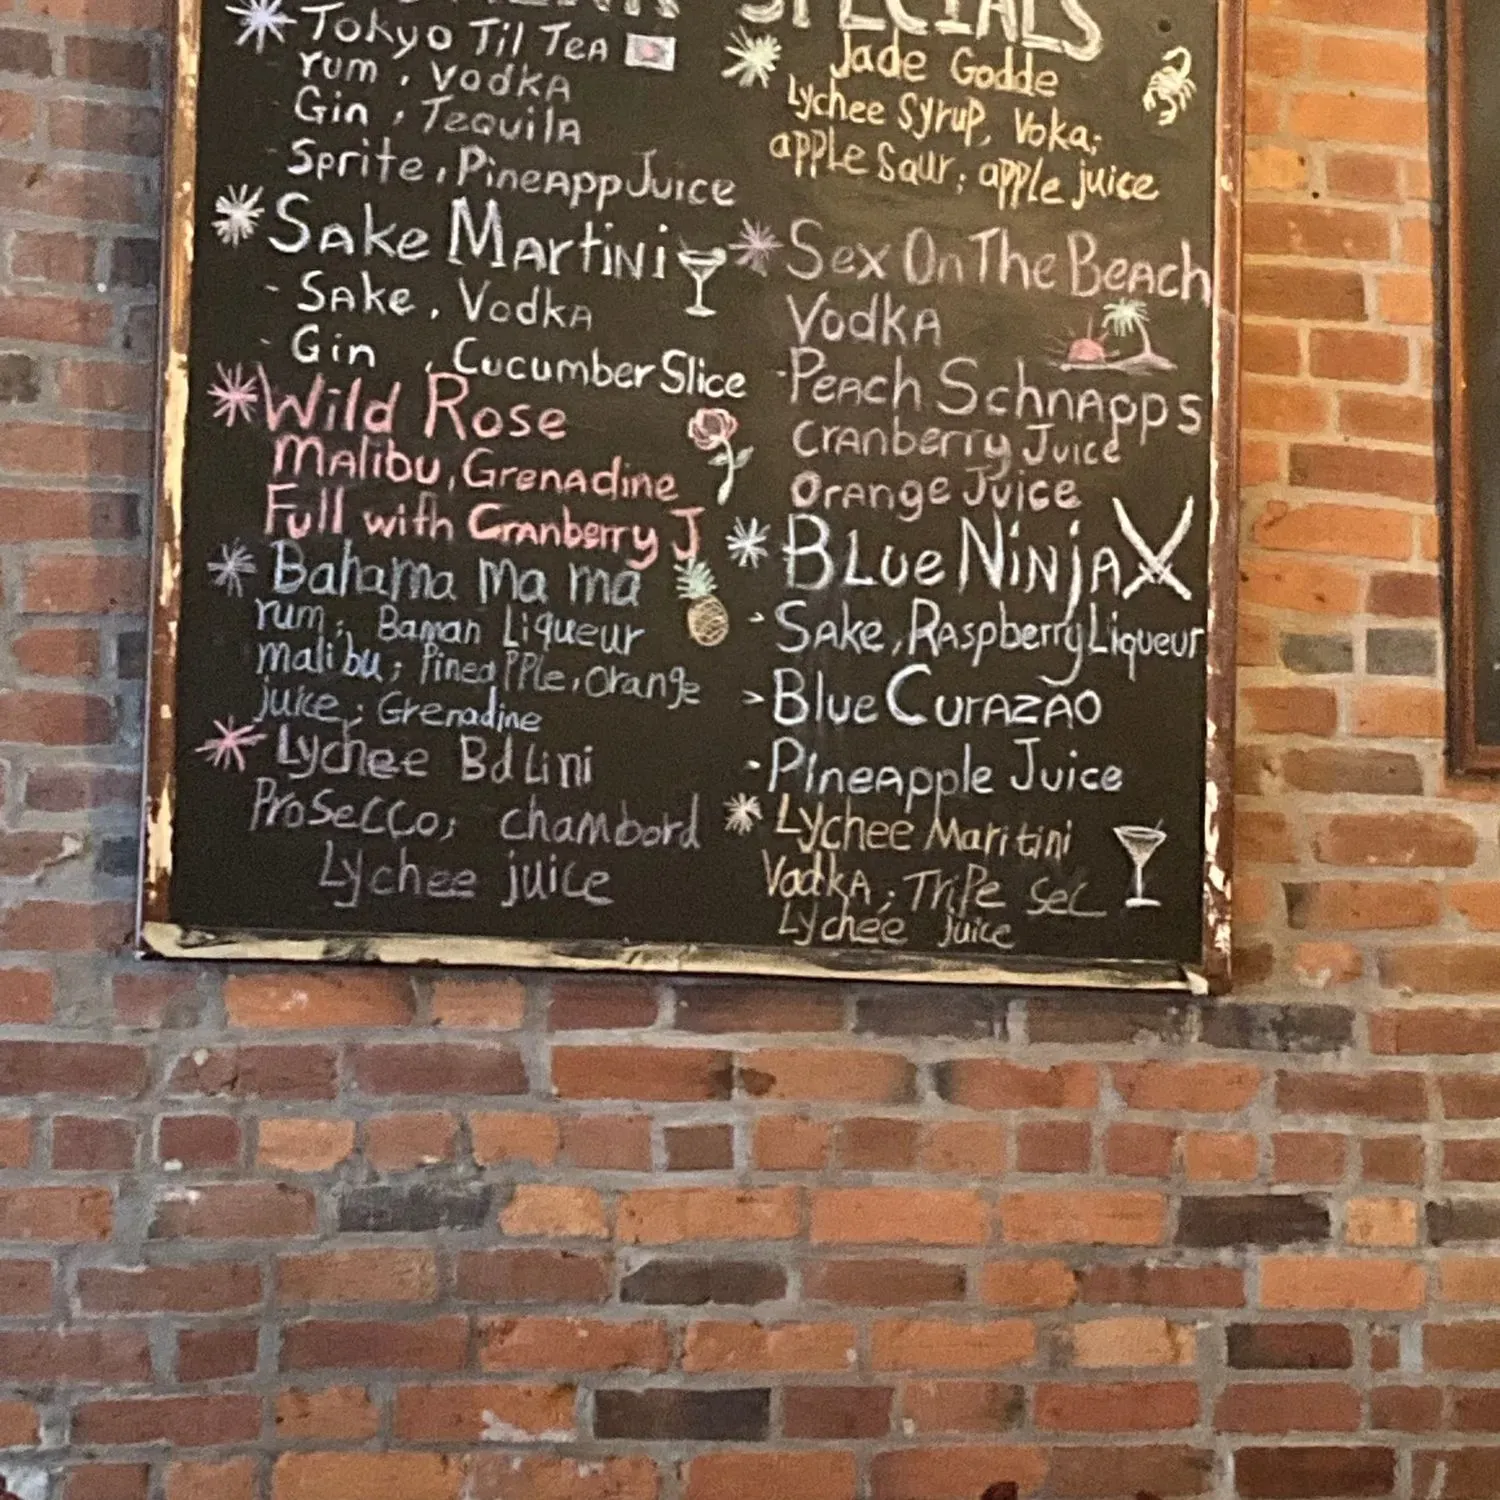 SPECIALS
Tokyo Til Tea
rum, Vodka
Gin, Tequila
Sprite, PineappJuice
Sake Martini
- Sake, Vodka
- Gin, Cucumber Slice
Wild Rose
Malibu, Grenadine
Full with Cranberry J
Bahama ma ma
rum; Baman Liqueur
malibu; Pineapple, Orange
juice; Grenadine
Lychee Bdlini
Prosecco; chambord
Lychee juice
Jade Godde
Lychee Syrup, Voka;
apple Saur; apple juice
Sex On The Beach
Vodka
- Peach Schnapps
Cranberry Juice
Orange Juice
Blue Ninja
- Sake, Raspberry Liqueur
> Blue Curazao
- Pineapple Juice
Lychee Maritini
Vodka; Tripe Sec
Lychee juice